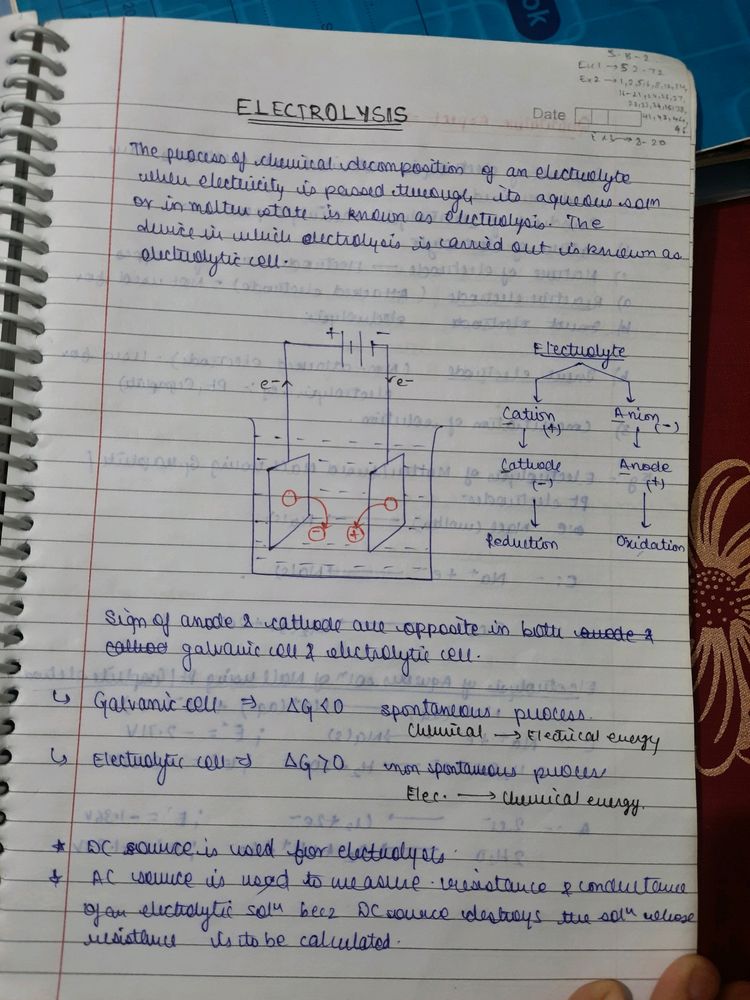 ok
S-B-2
Ex1 → 52-72
ELECTROLYSIS
Date
The process of chemical decomposition of an electrolyte
when electricity is passed through its aqueous soln
or in molten state is known as electrolysis. The
device in which electrolysis is carried out is known as
electrolytic cell.
+ −
e- e-
Electrolyte
Cation Anion
(+) (-)
Cathode Anode
(-) (+)
Reduction Oxidation
− +
Sign of anode & cathode are opposite in both anode &
cathod galvanic cell & electrolytic cell.
↳ Galvanic cell ⇒ ΔG<0 spontaneous process.
Chemical → Electrical energy
↳ Electrolytic cell ⇒ ΔG>0 non spontaneous process
Elec. → Chemical energy.
* DC source is used for electrolysis.
* AC source is used to measure resistance & conductance
of an electrolytic soln becz DC source destroys the soln whose
resistance is to be calculated.